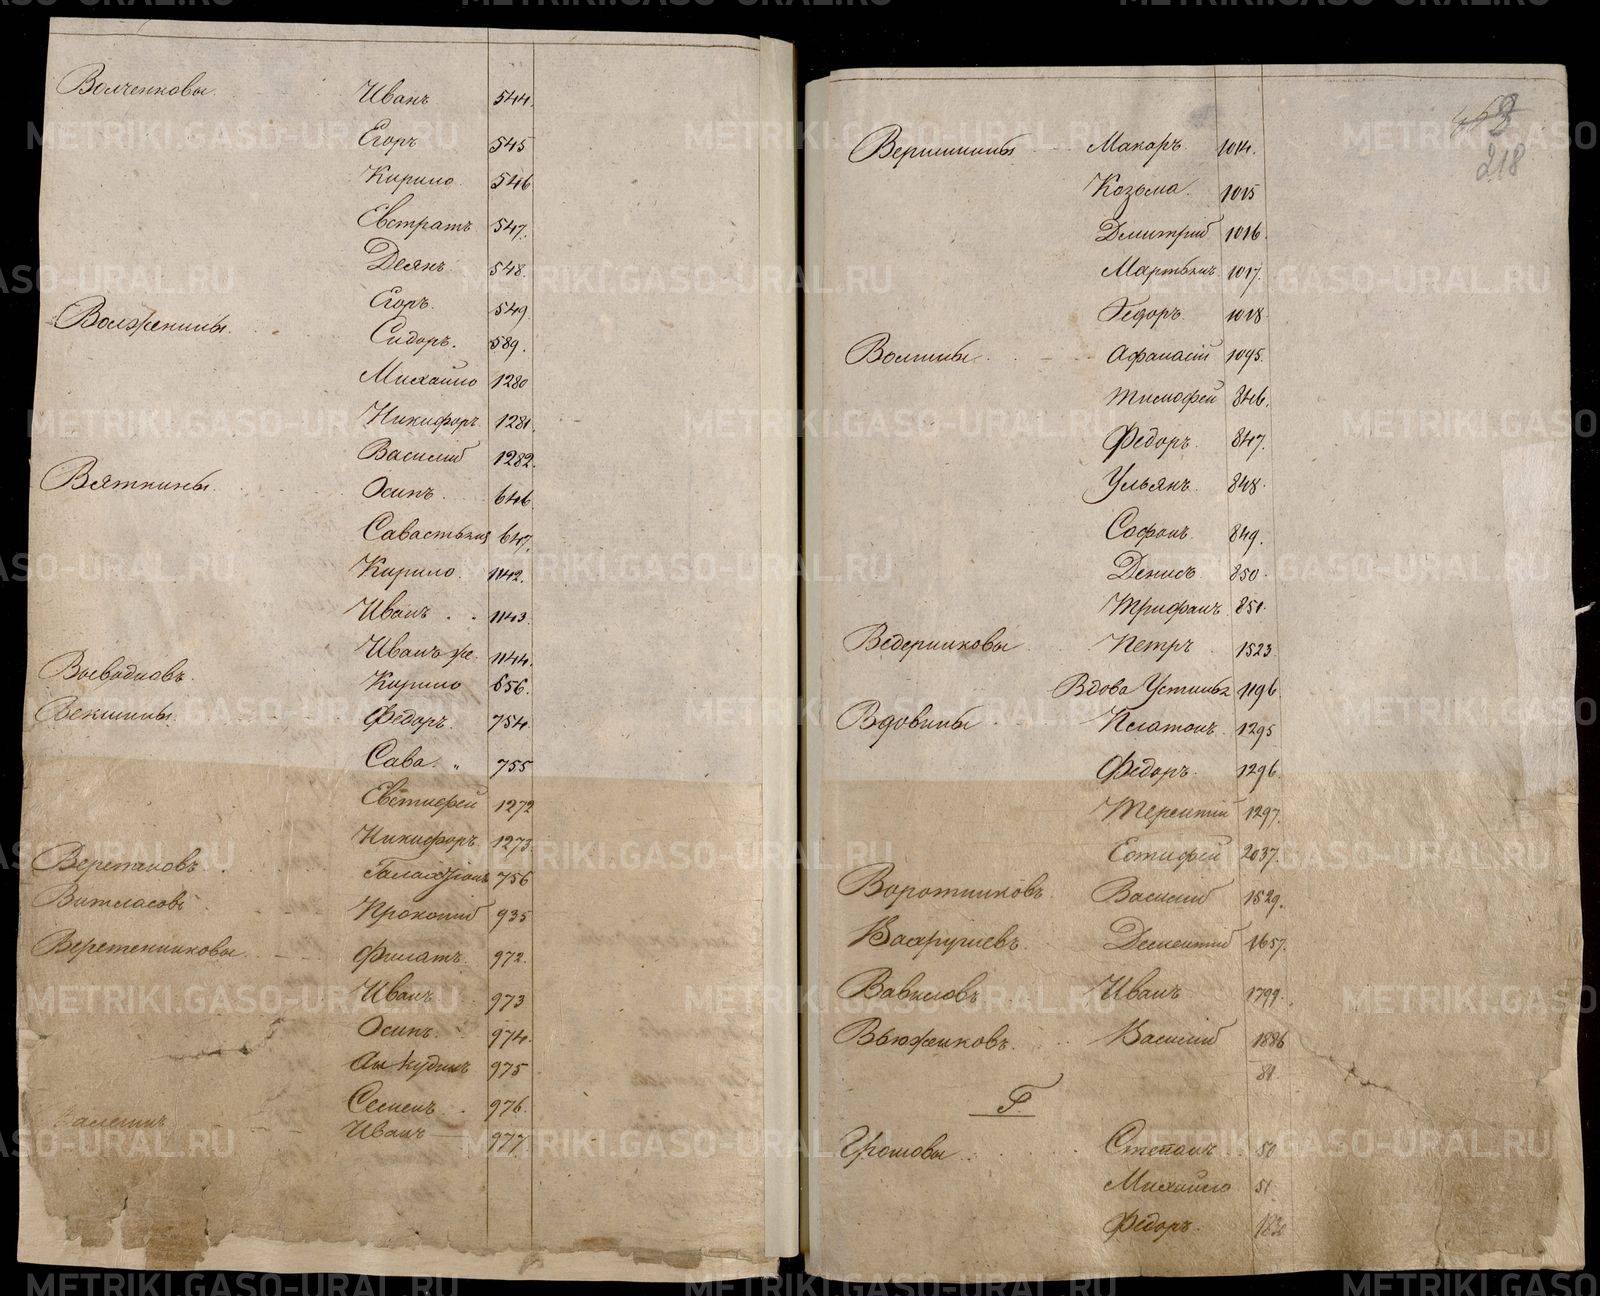 Волченковы. Иванъ 544.
Егоръ 545
Кирило 546
Евстратъ 547.
Деянъ 548.
Егоръ. 549.
Волженины. Сидоръ. 589.
Михайло 1280
Никифоръ 1281.
Василий 1282.
Вяткины. Осипъ. 646.
Савастьянъ 647.
Кирило. 1142.
Иванъ 1143.
Иванъ же. 1144.
Воеводновъ. Кирило 656.
Векшины. Федоръ. 754.
Сава. 755
Евстифей 1272
Никифоръ 1273.
Галактіонъ 756
Прокопий 935
Веретенниковы. Филатъ. 972.
Иванъ 973
Осипъ. 974.
Анкудинъ 975
Семенъ 976.
Иванъ 977
218
Вершинины Макаръ. 1014.
Козьма. 1015
Дмитрий 1016.
Мартынъ. 1017.
Федоръ. 1018.
Волнины. Афанасій 1095.
Тимофей 846.
Федоръ. 847.
Ульянъ. 848.
Софонъ. 849.
Денисъ 850.
Трифанъ. 851.
Ведерниковы Петръ 1523
Вдова Устинья 1196
Вдовины Платонъ. 1295
Федоръ. 1296.
Терентий 1297.
Естифей 2037.
Воротниковъ. Василий 1529.
Вахрушевъ. Дементий 1657.
Вавиловъ Иванъ 1799.
Вьюжниковъ. Василий 1886
81.
Г.
Громовы Степанъ 50
Михайло 51
Федоръ.
METRIKI.GASO-URAL.RU